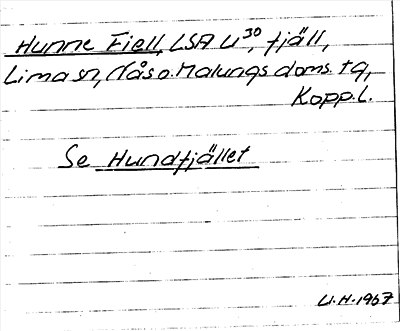 Hunne Fiell, LSA U30, fjäll,
Lima sn, Nås o. Malungs doms. tg,
Kopp. l.
Se Hundfjället
U.H. 1967